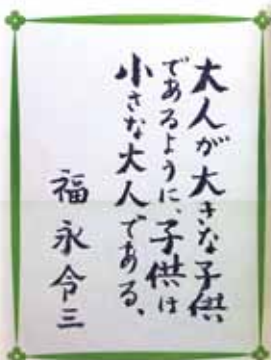 大人が大きな子供
であるように、子供は
小さな大人である、
福永令三